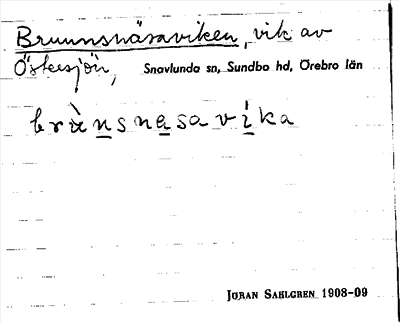 Brunnsnäsaviken, vik av
Östersjön, Snavlunda sn, Sundbo hd, Örebro län
brùnsnasavíka
JÖRAN SAHLGREN 1908-09